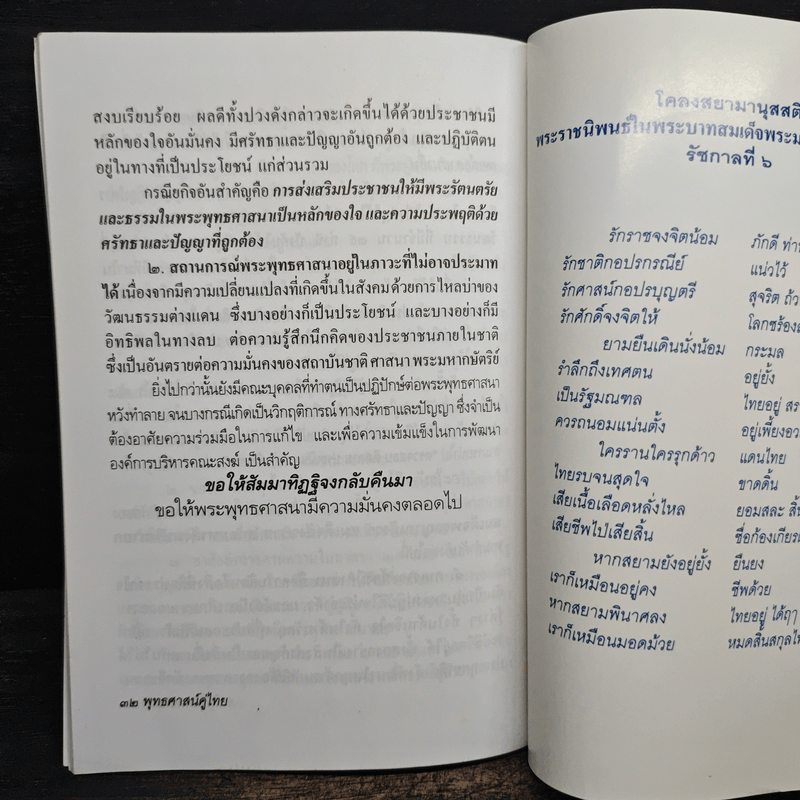 สงบเรียบร้อย ผลดีทั้งปวงดังกล่าวจะเกิดขึ้นได้ด้วยประชาชนมี
หลักของใจอันมั่นคง มีศรัทธาและปัญญาอันถูกต้อง และปฏิบัติตน
อยู่ในทางที่เป็นประโยชน์ แก่ส่วนรวม
กรณียกิจอันสำคัญคือ การส่งเสริมประชาชนให้มีพระรัตนตรัย
และธรรมในพระพุทธศาสนาเป็นหลักของใจ และความประพฤติด้วย
ศรัทธาและปัญญาที่ถูกต้อง
๒. สถานการณ์พระพุทธศาสนาอยู่ในภาวะที่ไม่อาจประมาท
ได้ เนื่องจากมีความเปลี่ยนแปลงที่เกิดขึ้นในสังคมด้วยการไหลบ่าของ
วัฒนธรรมต่างแดน ซึ่งบางอย่างก็เป็นประโยชน์ และบางอย่างก็มี
อิทธิพลในทางลบ ต่อความรู้สึกนึกคิดของประชาชนภายในชาติ
ซึ่งเป็นอันตรายต่อความมั่นคงของสถาบันชาติ ศาสนา พระมหากษัตริย์
ยิ่งไปกว่านั้นยังมีคณะบุคคลที่ทำตนเป็นปฏิปักษ์ต่อพระพุทธศาสนา
หวังทำลาย จนบางกรณีเกิดเป็นวิกฤติการณ์ ทางศรัทธาและปัญญา ซึ่งจำเป็น
ต้องอาศัยความร่วมมือในการแก้ไข และเพื่อความเข้มแข็งในการพัฒนา
องค์การบริหารคณะสงฆ์ เป็นสำคัญ
ขอให้สัมมาทิฏฐิจงกลับคืนมา
ขอให้พระพุทธศาสนามีความมั่นคงตลอดไป
๓๒ พุทธศาสน์คู่ไทย
โคลงสยามานุสสติ
พระราชนิพนธ์ในพระบาทสมเด็จพระม
รัชกาลที่ ๖
รักราชจงจิตน้อม ภักดี ท่า
รักชาติกอปรกรณีย์ แน่วไว้
รักศาสน์กอปรบุญตรี สุจริต ถ้ว
รักศักดิ์จงจิตให้ โลกซร้อง
ยามยืนเดินนั่งน้อม กระมล
รำลึกถึงเทศตน อยู่ยั้ง
เป็นรัฐมณฑล ไทยอยู่ สร
ควรถนอมแน่นตั้ง อยู่เพี้ยงอว
ใครรานใครรุกด้าว แดนไทย
ไทยรบจนสุดใจ ขาดดิ้น
เสียเนื้อเลือดหลั่งไหล ยอมสละ สิ้
เสียชีพไป่เสียสิ้น ชื่อก้องเกียร
หากสยามยังอยู่ยั้ง ยืนยง
เราก็เหมือนอยู่คง ชีพด้วย
หากสยามพินาศลง ไทยอยู่ ได้ฤๅ
เราก็เหมือนมอดม้วย หมดสิ้นสกุลไท